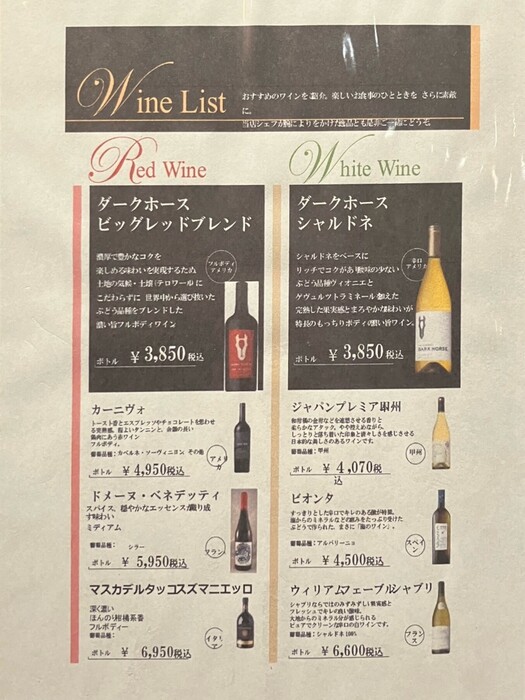 Wine List
おすすめのワインをご紹介。楽しいお食事のひとときを さらに素敵
に。
当店シェフが腕によりをかけた逸品とも是非ご一緒にどうぞ。
Red Wine
ダークホース
ビッグレッドブレンド
濃厚で豊かなコクを
楽しめる味わいを実現するため、
土地の気候・土壌(テロワール)に
こだわらずに 世界中から選び抜いた
ぶどう品種をブレンドした
濃い旨フルボディワイン
フルボディ
アメリカ
ボトル ¥ 3,850税込
カーニヴォ
トースト香とエスプレッソやチョコレートを思わせ
フルボディ。
葡萄品種:カベルネ・ソーヴィニヨン その他
アメリカ
ボトル ¥ 4,950税込
ドメーヌ・ベネデッティ
スパイス、穏やかなエッセンスが織り成
す味わい
ミディアム
葡萄品種: シラー
フラン
ボトル ¥ 5,950税込
マスカデルタッコスズマニエッロ
深く濃い
ほんのり柑橘系香
フルボディー
イタリア
ボトル ¥ 6,950税込
White Wine
ダークホース
シャルドネ
シャルドネをベースに
リッチでコクがあり酸味の少ない
ぶどう品種ヴィオニエと
ゲヴュルツトラミネールを加えた
完熟した果実感とまろやかな味わいが
特長のもっちりボディの濃い旨ワイン。
辛口
アメリカ
DARK HORSE
ボトル ¥ 3,850税込
ジャパンプレミアム甲州
和柑橘の金柑などを連想させる香りと
柔らかなアタック。やや控えめながら、
しっとりと落ち着いた印象と清々しさを感じさせる
日本的な奥ゆかしさのあるワインです。
葡萄品種:甲州
甲州
ボトル ¥ 4,070税
込
ビオンタ
すっきりとした辛口でキレのある酸が特徴。
海からのミネラルなどの恵みをたっぷり受けた
ぶどうで作られた、まさに「海のワイン」。
葡萄品種:アルバリーニョ
スペイン
ボトル ¥ 4,500税込
ウィリアムフェーブルシャブリ
シャブリならではのみずみずしい果実感と
フレッシュでキレの良い酸味。
大地からのミネラル分が感じられる
ピュアでクリーンな辛口の白ワインです。
葡萄品種:シャルドネ100%
フランス
ボトル ¥ 6,600税込